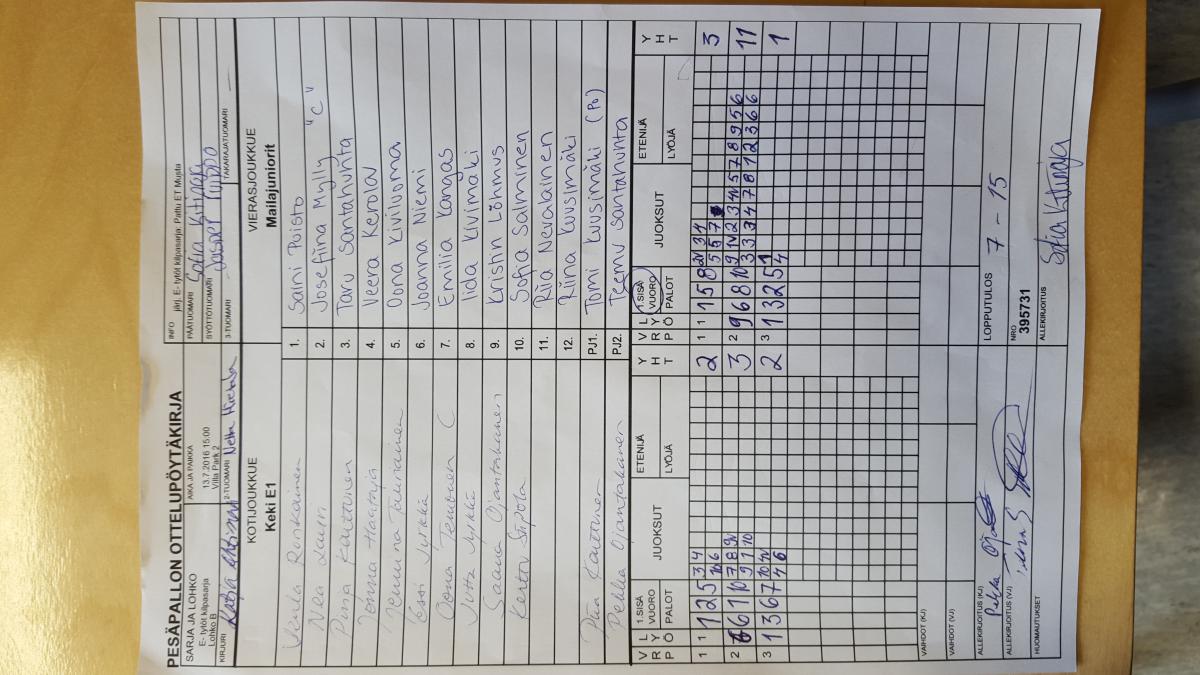 PESÄPALLON OTTELUPÖYTÄKIRJA
SARJA JA LOHKO
E- tytöt kilpasarja
Lohko B
AIKA JA PAIKKA
13.7.2016 15:00
Villa Park 2
INFO järj. E- tytöt kilpasarja: Pattu ET Musta
PÄÄTUOMARI Sofia
SYÖTTÖTUOMARI Jasper
KIRJURI Katja
2-TUOMARI Netta
3-TUOMARI
TAKARAJATUOMARI
KOTIJOUKKUE
Keki E1
VIERASJOUKKUE
Mailajuniorit
Venla Ronkainen
1. Saini Poisto
Nea Lauri
2. Josefiina Mylly "C"
Pinja Kauttinen
3. Taru Santahuhta
Jonna
4. Veera Kerolav
Jenni na
5. Oona Kiviluoma
Essi Jyrkkä
6. Joanna Niemi
Oona C
7. Emilia Kangas
Jutta Jyrkkä
8. Iida Kivimäki
Saana Ojantakanen
9. Kristin Löhmus
Kerttu
10. Sofia Salminen
11. Riia Nevalainen
12. Riina Kuusimäki
Kauttinen
PJ1. Tomi Kuusimäki (PO)
Pekka Ojantakanen
PJ2. Teemu Santahuhta
V R P
L Y Ö
1.SISÄ
VUORO
PALOT
JUOKSUT
ETENIJÄ
LYÖJÄ
Y H T
V R P
L Y Ö
1.SISÄ
VUORO
PALOT
JUOKSUT
ETENIJÄ
LYÖJÄ
Y H T
1 1 1 2 5 3 4 2
10 6
1 1 1 5 8 3 4 3
5 5 7
2 6 1 10 7 8 3
9 1 10
2 9 6 8 10 9 2 3 4 5 7 8 9 5 6 11
3 3 3 4 7 8 1 2 3 6 6
3 1 3 6 7 10 2
4 6
3 1 3 2 5 1 1
4
VAIHDOT (KJ)
VAIHDOT (VJ)
ALLEKIRJOITUS (KJ)
Pekka
ALLEKIRJOITUS (VJ)
HUOMAUTUKSET
LOPPUTULOS 7 - 15
NRO
395731
ALLEKIRJOITUS
Sofia